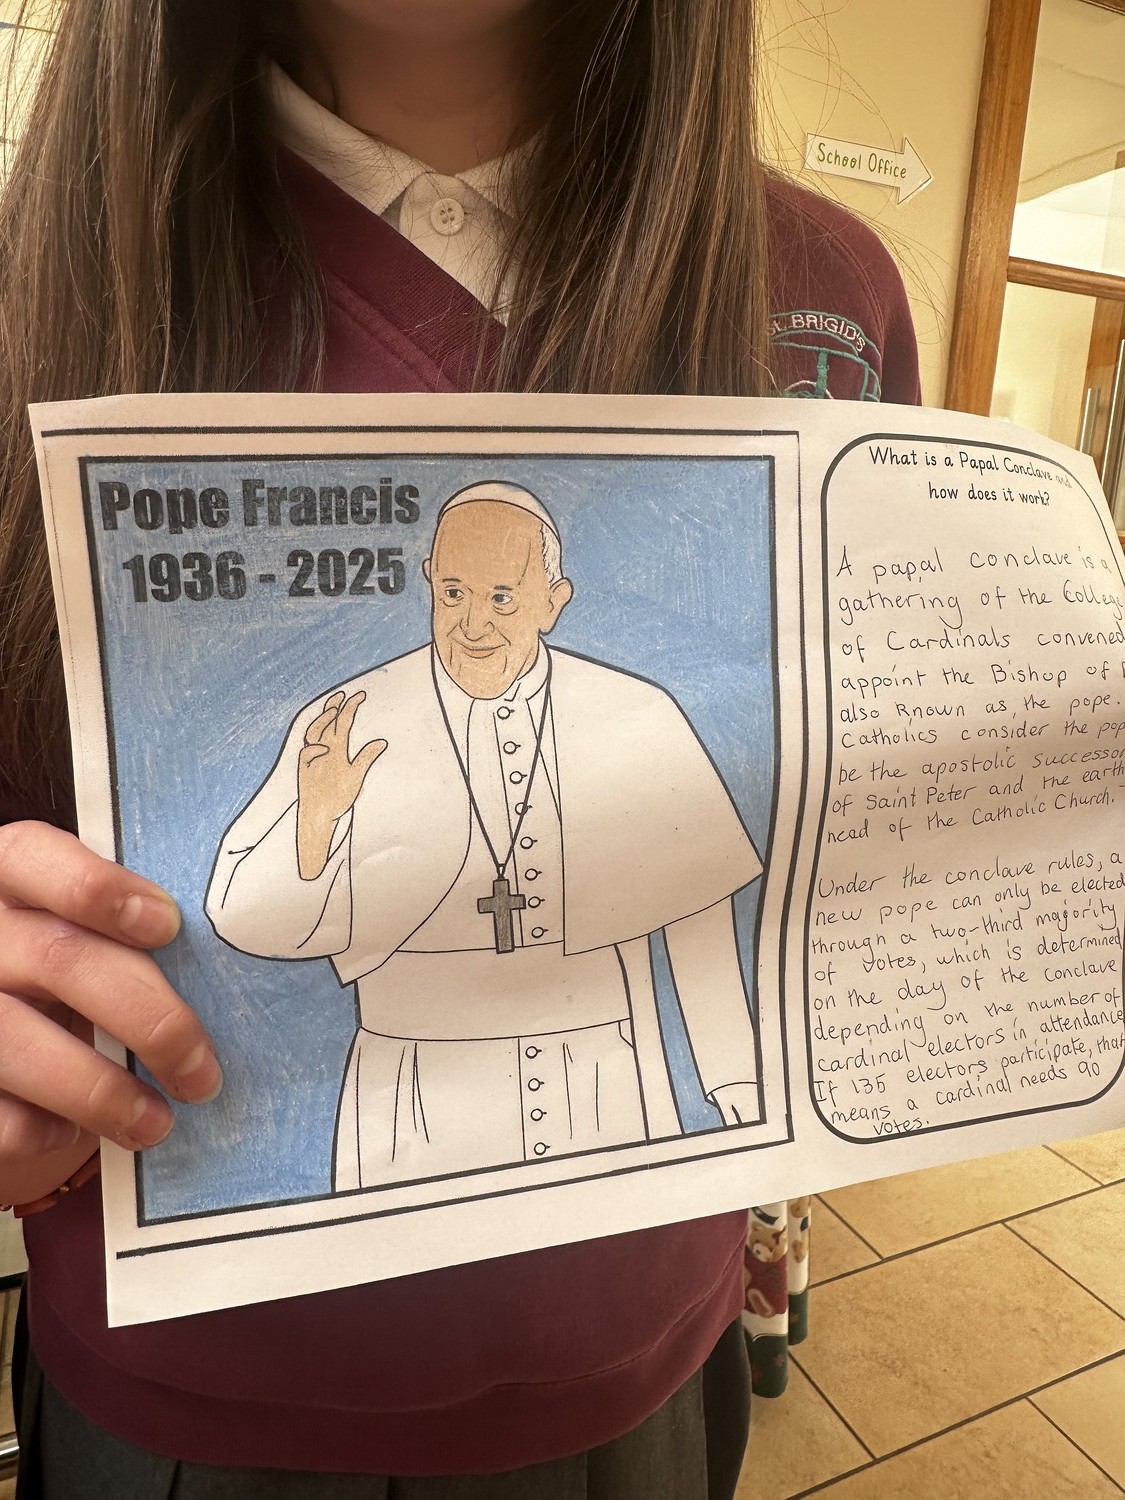 School Office
ST. BRIGID'S
Pope Francis
1936 - 2025
What is a Papal Conclave and
how does it work?
A papal conclave is a
gathering of the College
of Cardinals convened
appoint the Bishop of
also known as the pope.
Catholics consider the
be the apostolic
of Saint Peter and the
head of the Catholic Church.
Under the conclave rules, a
new pope can only be elected
through a two-third majority
of votes, which is determined
on the day of the conclave
depending on the number of
cardinal electors in attendance
If 135 electors participate, that
means a cardinal needs 90
votes.